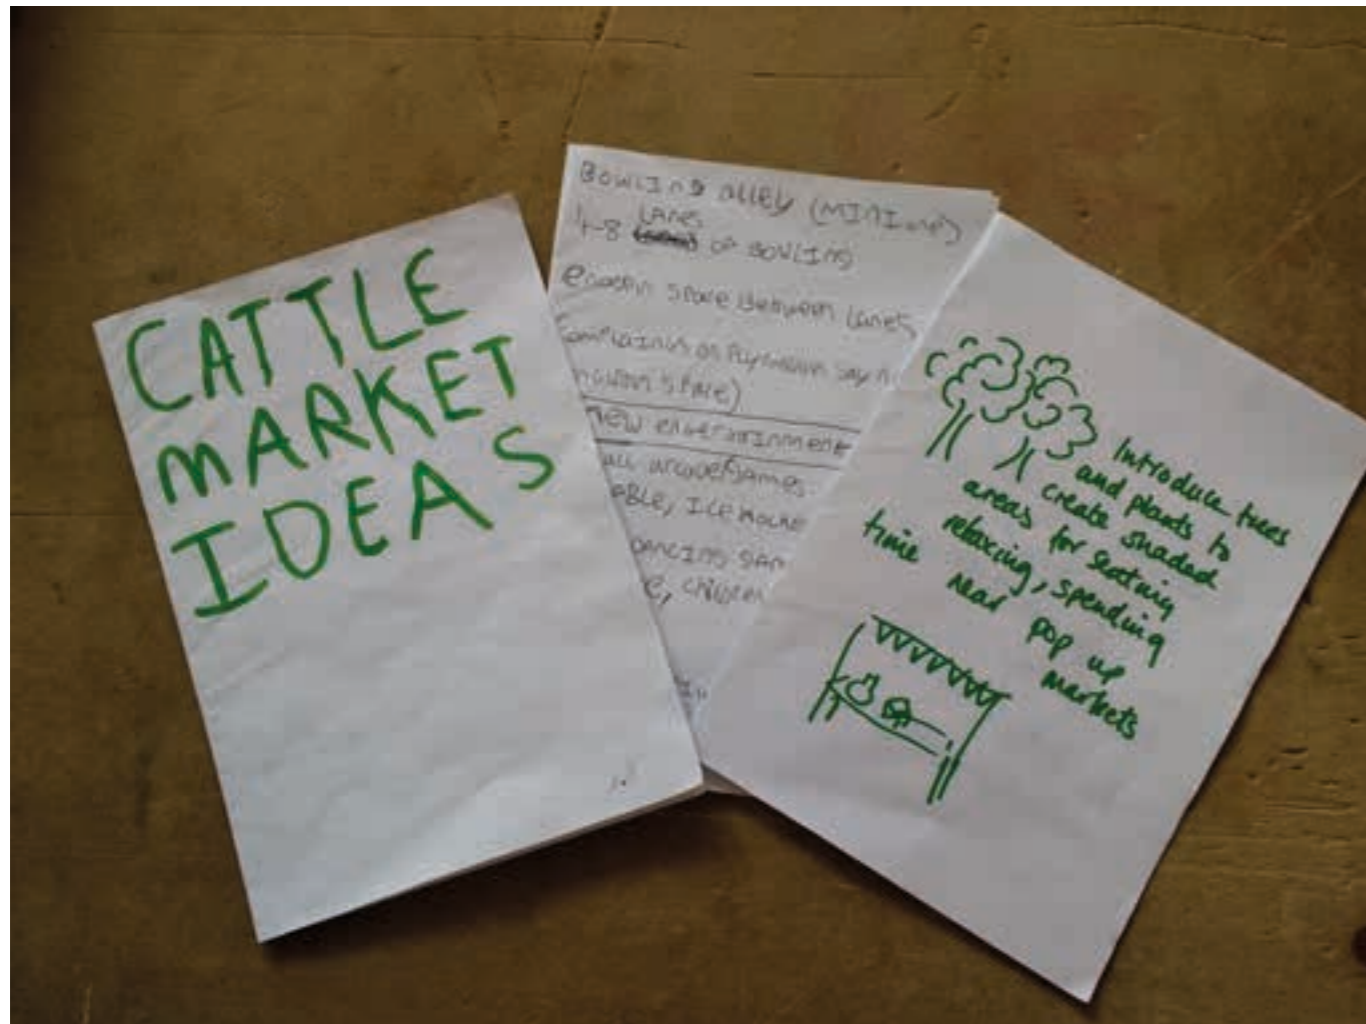 CATTLE
MARKET
IDEAS
BOWLING alley (MINI one)
4-8 LANES OF BOWLING
space Between Lanes
say
space)
new entertainment
arcade games.
ABLE, ICE HOCKE
DANCING GAM
CHILDREN
Introduce trees
and plants to
create shaded
areas for seating
relaxing, spending
time near pop up
markets